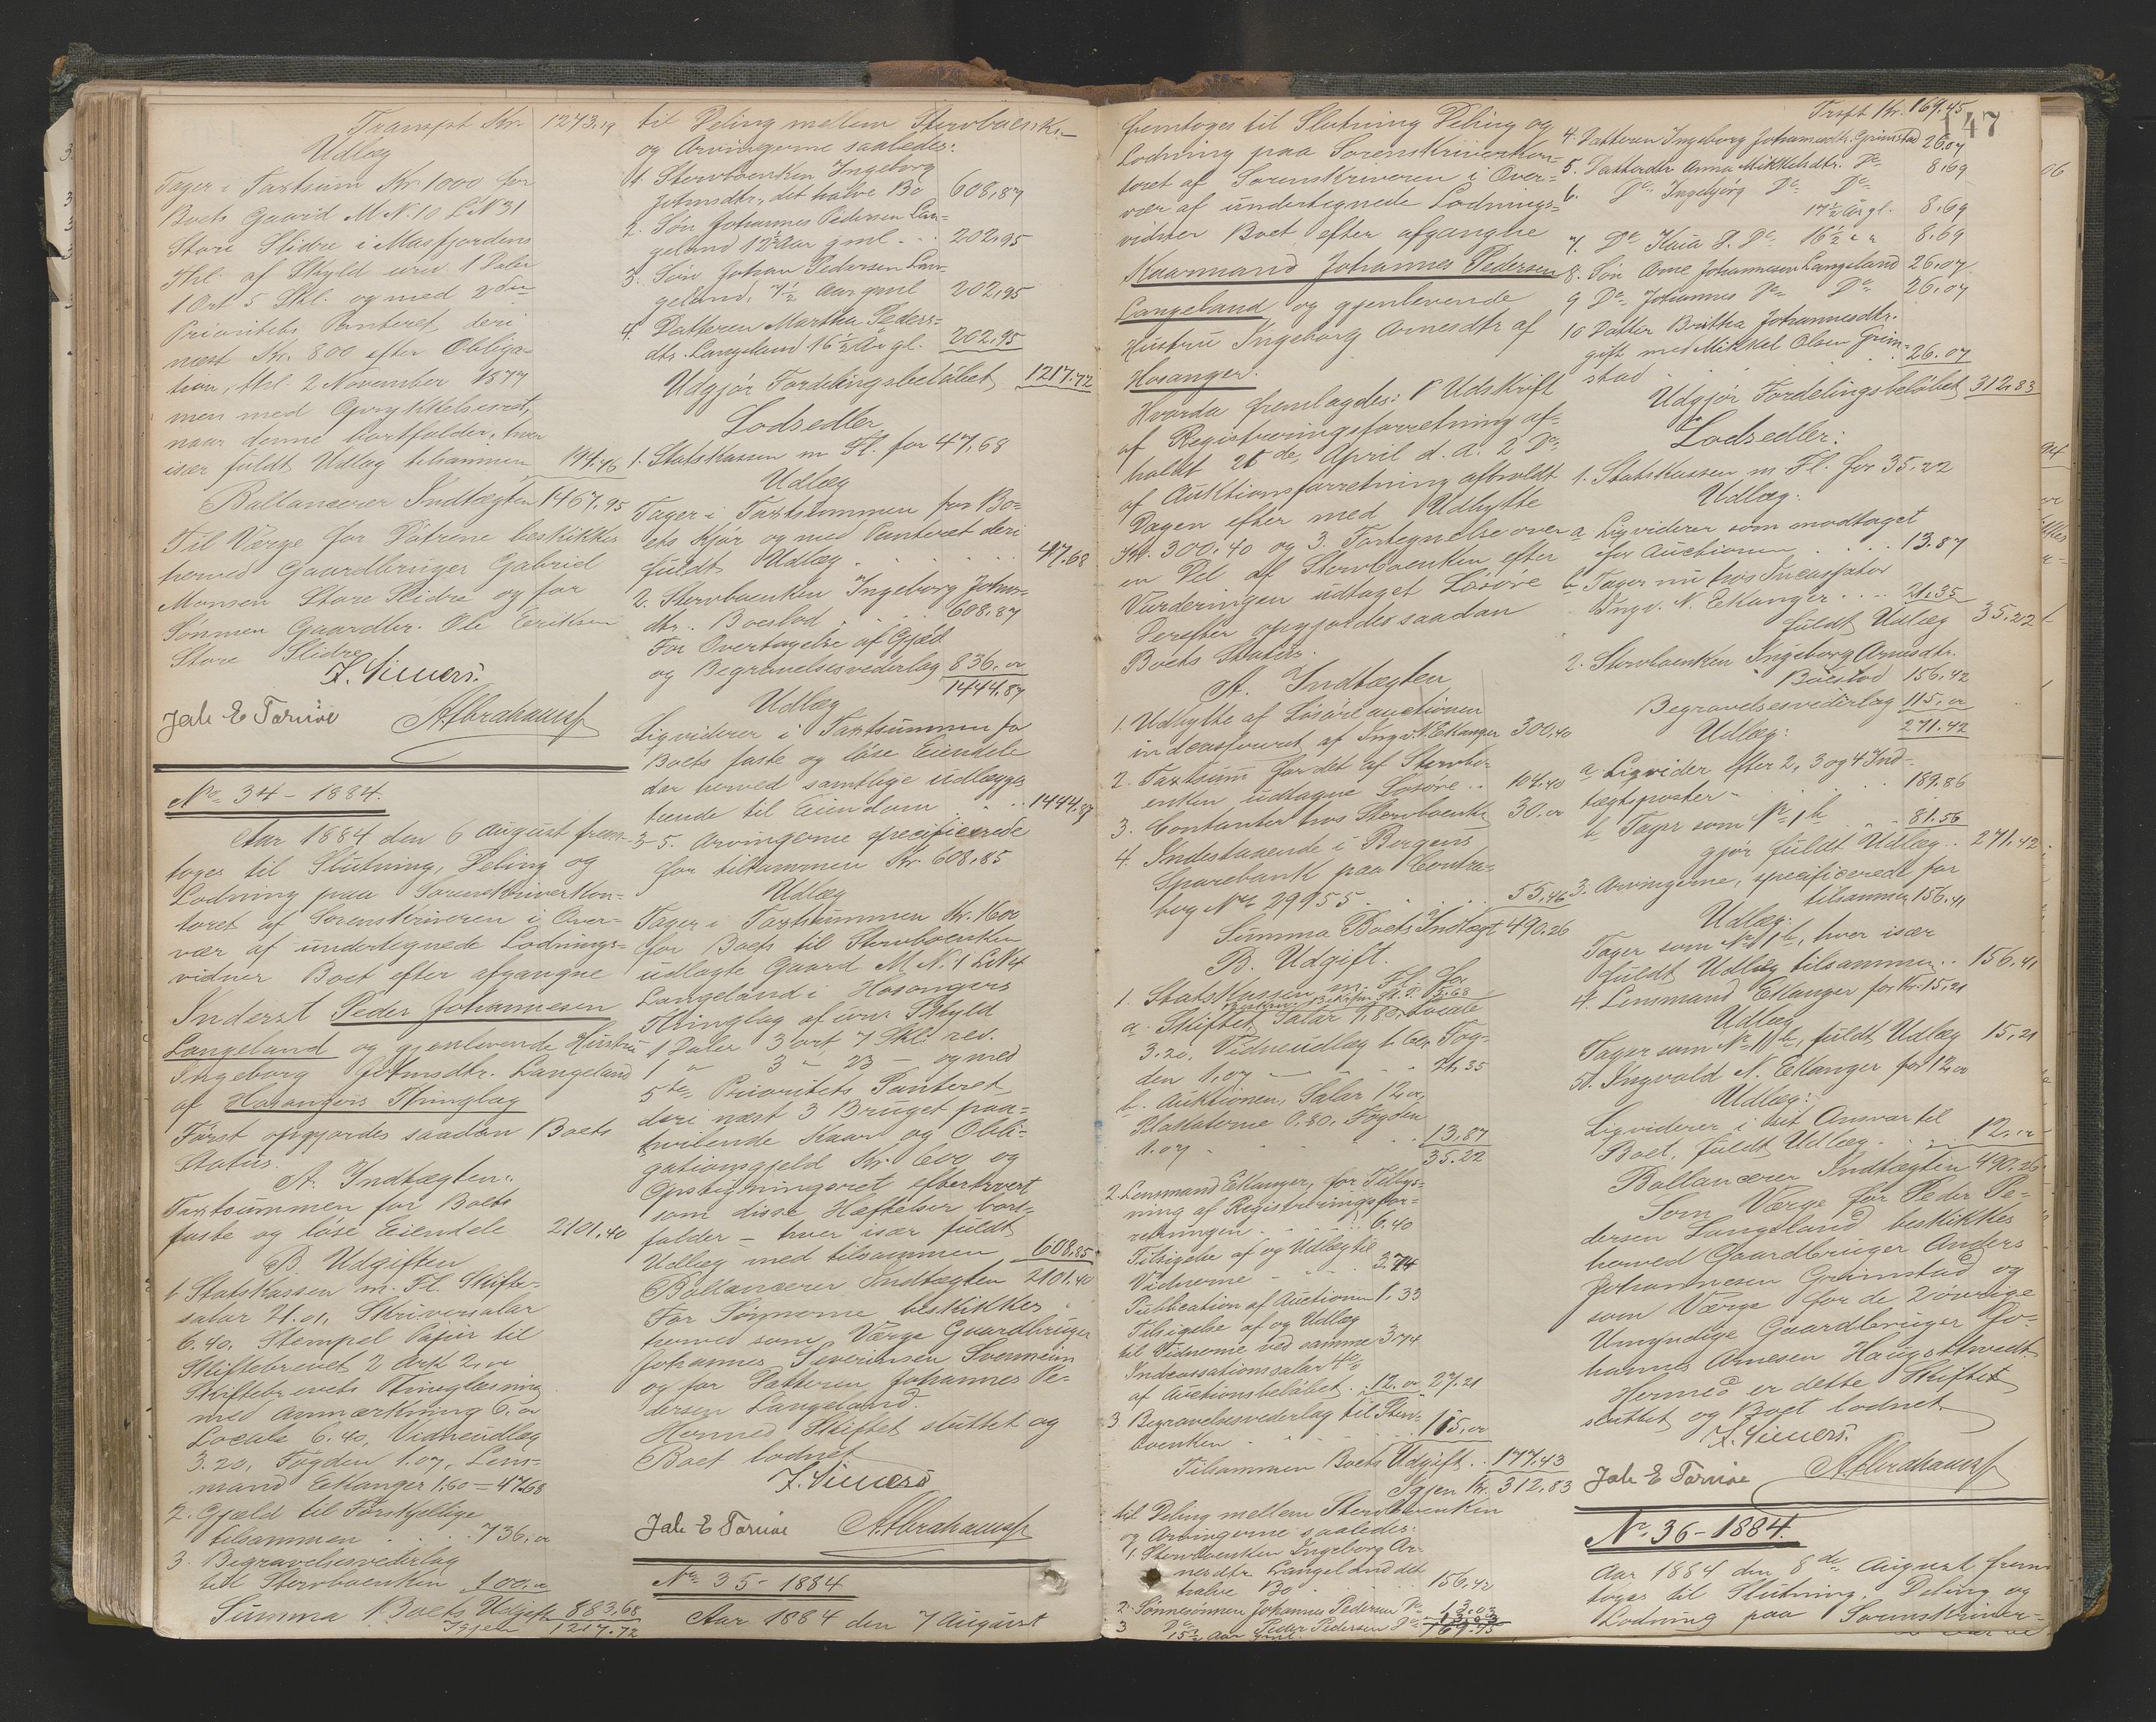 Transpt Kr. 1273.19
Udlæg
Tager i Taxtsum Kr. 1000 for
Boets Gaard M.N. 10 L.N. 31
Store Slidre i Masfjordens
Thl. af Skyld urev. 1 Daler
1 Ort 5 Skl. og med 2den
Prioritets Panteret deri
næst Kr. 800 efter Obliga-
tion, thl. 2 November 1877
men med Oprykkelsesret,
naar denne bortfalder, hver
især fuldt Udlæg tilsammen 194.76
Ballancerer Indtægten 1467.95
Til Værge for Døtrene beskikkes
herved Gaardbruger Gabriel
Monsen Store Slidre og for
Sønnen Gaardbr. Ole Eriksen
Store Slidre
F. Siewers.
Jak E Tornöe A. Abrahamsen
No 34 - 1884.
Aar 1884 den 6 August frem-
toges til Slutning, Deling og
Lodning paa Sorenskriverkon-
toret af Sorenskriveren i Over-
vær af undertegnede Lodnings-
vidner Boet efter afgangne
Inderst Peder Johannesen
Langeland og gjenlevende Hustru
Ingeborg Johnsdtr. Langeland
af Hosangers Thinglag
Først opgjordes saadan Boets
Status.
A. Indtægten:
Taxtsummen for Boets
faste og løse Eiendele 2101.40
B. Udgiften
1. Statskassen m. Fl. Skifte-
salar 21.01, Skriversalar
6.40, Stempel Papir til
Skiftebrevet 2 Ark 2,00
Skiftebrevets Thinglæsning
med Anmærkning 6,00
Locale 6.40, Vidneudlæg
3.20, Fogden 1.07, Lens-
mand Ekanger 1.60 = 47.68
2. Gjæld til Forskjellige
tilsammen . . . 736,00
3. Begravelsesvederlag
til Stervboenken 100,00
Summa Boets Udgift 883.68
Igjen 1217.72
til Deling mellem Stervboenken
og Arvingerne saaledes:
1. Stervboenken Ingeborg
Johnsdtr., det halve Bo 608,87
2. Søn Johannes Pedersen Lan-
geland 12½ Aar gml . . 202,95
3. Søn Johan Pedersen Lan-
geland, 7½ Aar gml 202,95
4. Datteren Martha Peders-
dtr. Langeland 16½ Aar gl. 202,95
Udgjør Fordelingsbeløbet 1217.72
Lodsedler
1. Statskassen m Fl. for 47,68
Udlæg
Tager i Taxtsummen for Bo-
ets Kjør og med Panteret deri
fuldt Udlæg . . . . 47.68
2. Stervboenken Ingeborg Johns-
dtr. Boeslod . . 608.87
For Overtagelse af Gjæld
og Begravelsesvederlag 836,00
1444,87
Udlæg
Ligviderer i Taxtsummen for
Boets faste og løse Eiendele
der herved samtlige udlægges
hende til Eiendom . . 1444.87
3-5. Arvingerne specificerede
for tilsammen Kr. 608.85
Udlæg
Tager i Taxtsummen Kr. 1600
for Boets til Stervboenken
udlagte Gaard M.N. 1 L.N. 4
Langeland i Hosangers
Thinglag af urev Skyld
1 Daler 3 ort 7 Skl. rev.
1 " 3 - 23 - og med
5te Prioritets Panteret
deri næst 3 Bruget paa-
hvilende Kaar og Obli-
gationsgjeld Kr. 600 og
Opstigningsret efterhvert
som disse Hæftelser bort-
falder - hver især fuldt
Udlæg med tilsammen 608.85
Ballancerer Indtægten 2101.40
For Sønnerne beskikkes
herved som Værge Gaardbruger
Johannes Severinsen Svenheim
og for Datteren Johannes Pe-
dersen Langeland.
Hermed Skiftet sluttet og
Boet lodnet
F. Siewers
Jak E Tornöe A. Abrahamsen
No 35 - 1884
Aar 1884 den 7 August
147
fremtoges til Slutning Deling og
Lodning paa Sorenskriverkon-
toret af Sorenskriveren i Over-
vær af undertegnede Lodnings-
vidner Boet efter afgangne
Kaarmand Johannes Pedersen
Langeland og gjenlevende
Hustru Ingeborg Arnesdtr af
Hosanger.
Hvorda fremlagdes: 1o Udskrift
af Registreringsforretning af-
holdt 21de April d. A. 2 Do
af Auktionsforretning afholdt
Dagen efter med Udbytte
Kr. 300.40 og 3. Fortegnelse over
en Del af Stervboenken efter
Vurderingen udtaget Løsøre
Derefter opgjordes saadan
Boets Status.
A. Indtægten
1. Udbytte af Løsøreauctionen
indcasseret af Ingv. N. Ekanger 300.40
2. Taxtsum for det af Stervbo-
enken udtagne Løsøre . . 104.40
3. Contanter hos Stervboenken 30.00
4. Indestaaende i Bergens
Sparebank paa Contra-
bog No 29955 . . . 55,46
Summa Boets Indtægt 490.26
B. Udgift.
1. Statskassen m. Fl. for
a. Skiftet, Salar 9,80, Locale
3.20, Vidneudlæg 1.60, Fog-
den 1.07 - - - 21.35
b. Auktionen, Salar 12,00,
Plakaterne 0.80, Fogden
1.07 . . . . 13.87
35.22
2. Lensmand Ekanger, for Tillys-
ning af Registreringsfor-
retningen . . . . 6.40
Tilsigelse af og Udlæg til
Vidnerne - - 3.74
Publication af Auctionen 1.33
Tilsigelse af og Udlæg
til Vidnerne ved samme 3.74
Indcassationssalar 4%
af Auctionsbeløbet . . 12.00 27.21
3. Begravelsesvederlag til Sterv-
boenken . . . . 115,00
Tilsammen Boets Udgift . . 177.43
Igjen Kr. 312.83
til Deling mellem Stervboenken
og Arvingerne saaledes:
1. Stervboenken Ingeborg Ar-
nesdtr Langeland det
halve Bo . . . . 156.42
2. Sønnesønnen Johannes Pedersen Do 13.03
3 Do Peder Pedersen Do
15½ Aar gml. 169.45
Trspt Kr. 169.45
4. Datteren Ingeborg Johannesdtr. Grimstad 26.07
5. Datterdtr Anna Mikkelsdtr. Do 8.69
6. Do Ingebjørg Do Do
17½ Aar gl. 8.69
7. Do Kaia J. Do 16½ " " 8.69
8. Søn Arne Johannesen Langeland 26.07
9 Do Johannes Do Do 26.07
10 Datter Britha Johannesdtr.
gift med Mikkel Olsen Grim-
stad . . . 26.07
Udgjør Fordelingsbeløbet 312.83
Lodsedler:
1. Statskassen m. Fl. for 35.22
Udlæg:
a Ligviderer som modtaget
for Auctionen . . . . 13.87
b Tager nu hos Incassator
Ingv. N. Ekanger . . . 21.35
fuldt Udlæg 35.22
2. Stervboenken Ingeborg Arnesdtr.
Boeslod 156.42
Begravelsesvederlag 115,00
271.42
Udlæg:
a Ligvider efter 2, 3 og 4 Ind-
tægtsposter - . . . 189.86
b Tager som No 1 b . . 81.56
gjør fuldt Udlæg . . 271.42
3. Arvingerne, specificerede for
tilsammen 156.41
Udlæg:
Tager som No 1 b, hver især
fuldt Udlæg tilsammen . . 156.41
4. Lensmand Ekanger for Kr. 15.21
Udlæg
Tager som No 1 b, fuldt Udlæg 15.21
5. Ingvald N. Ekanger for 12,00
Udlæg:
Ligviderer i sit Ansvar til
Boet, fuldt Udlæg . . . 12,00
Ballancerer Indtægten 490.26
Som Værge for Peder Pe-
dersen Langeland beskikkes
herved Gaardbruger Anders
Johannesen Grimstad og
som Værge for de 2 øvrige
Umyndige Gaardbruger Jo-
hannes Arnesen Haugstvedt.
Hermed er dette Skiftet
sluttet og Boet lodnet
F. Siewers.
Jak E Tornöe A. Abrahamsen
No 36 - 1884.
Aar 1884 den 8de August frem
toges til Slutning, Deling og
Lodning paa Sorenskriver-